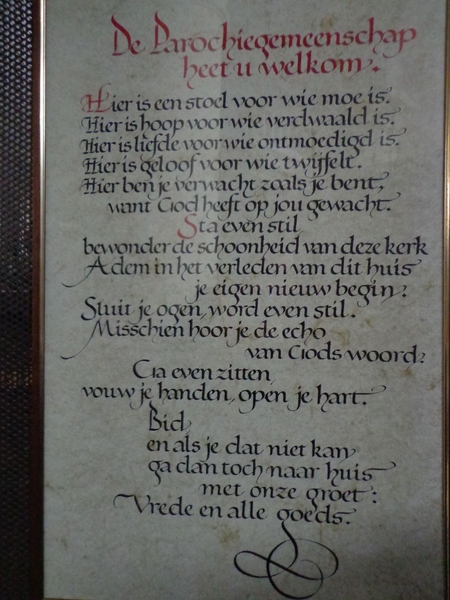 De Parochiegemeenschap
heet u welkom.
Hier is een stoel voor wie moe is.
Hier is hoop voor wie verdwaald is.
Hier is liefde voor wie ontmoedigd is.
Hier is geloof voor wie twijfelt.
Hier ben je verwacht zoals je bent,
want God heeft op jou gewacht.
Sta even stil
bewonder de schoonheid van deze kerk
Adem in het verleden van dit huis
je eigen nieuw begin?
Sluit je ogen, word even stil.
Misschien hoor je de echo
van Gods woord?
Ga even zitten,
vouw je handen, open je hart.
Bid
en als je dat niet kan
ga dan toch naar huis
met onze groet:
Vrede en alle goeds.